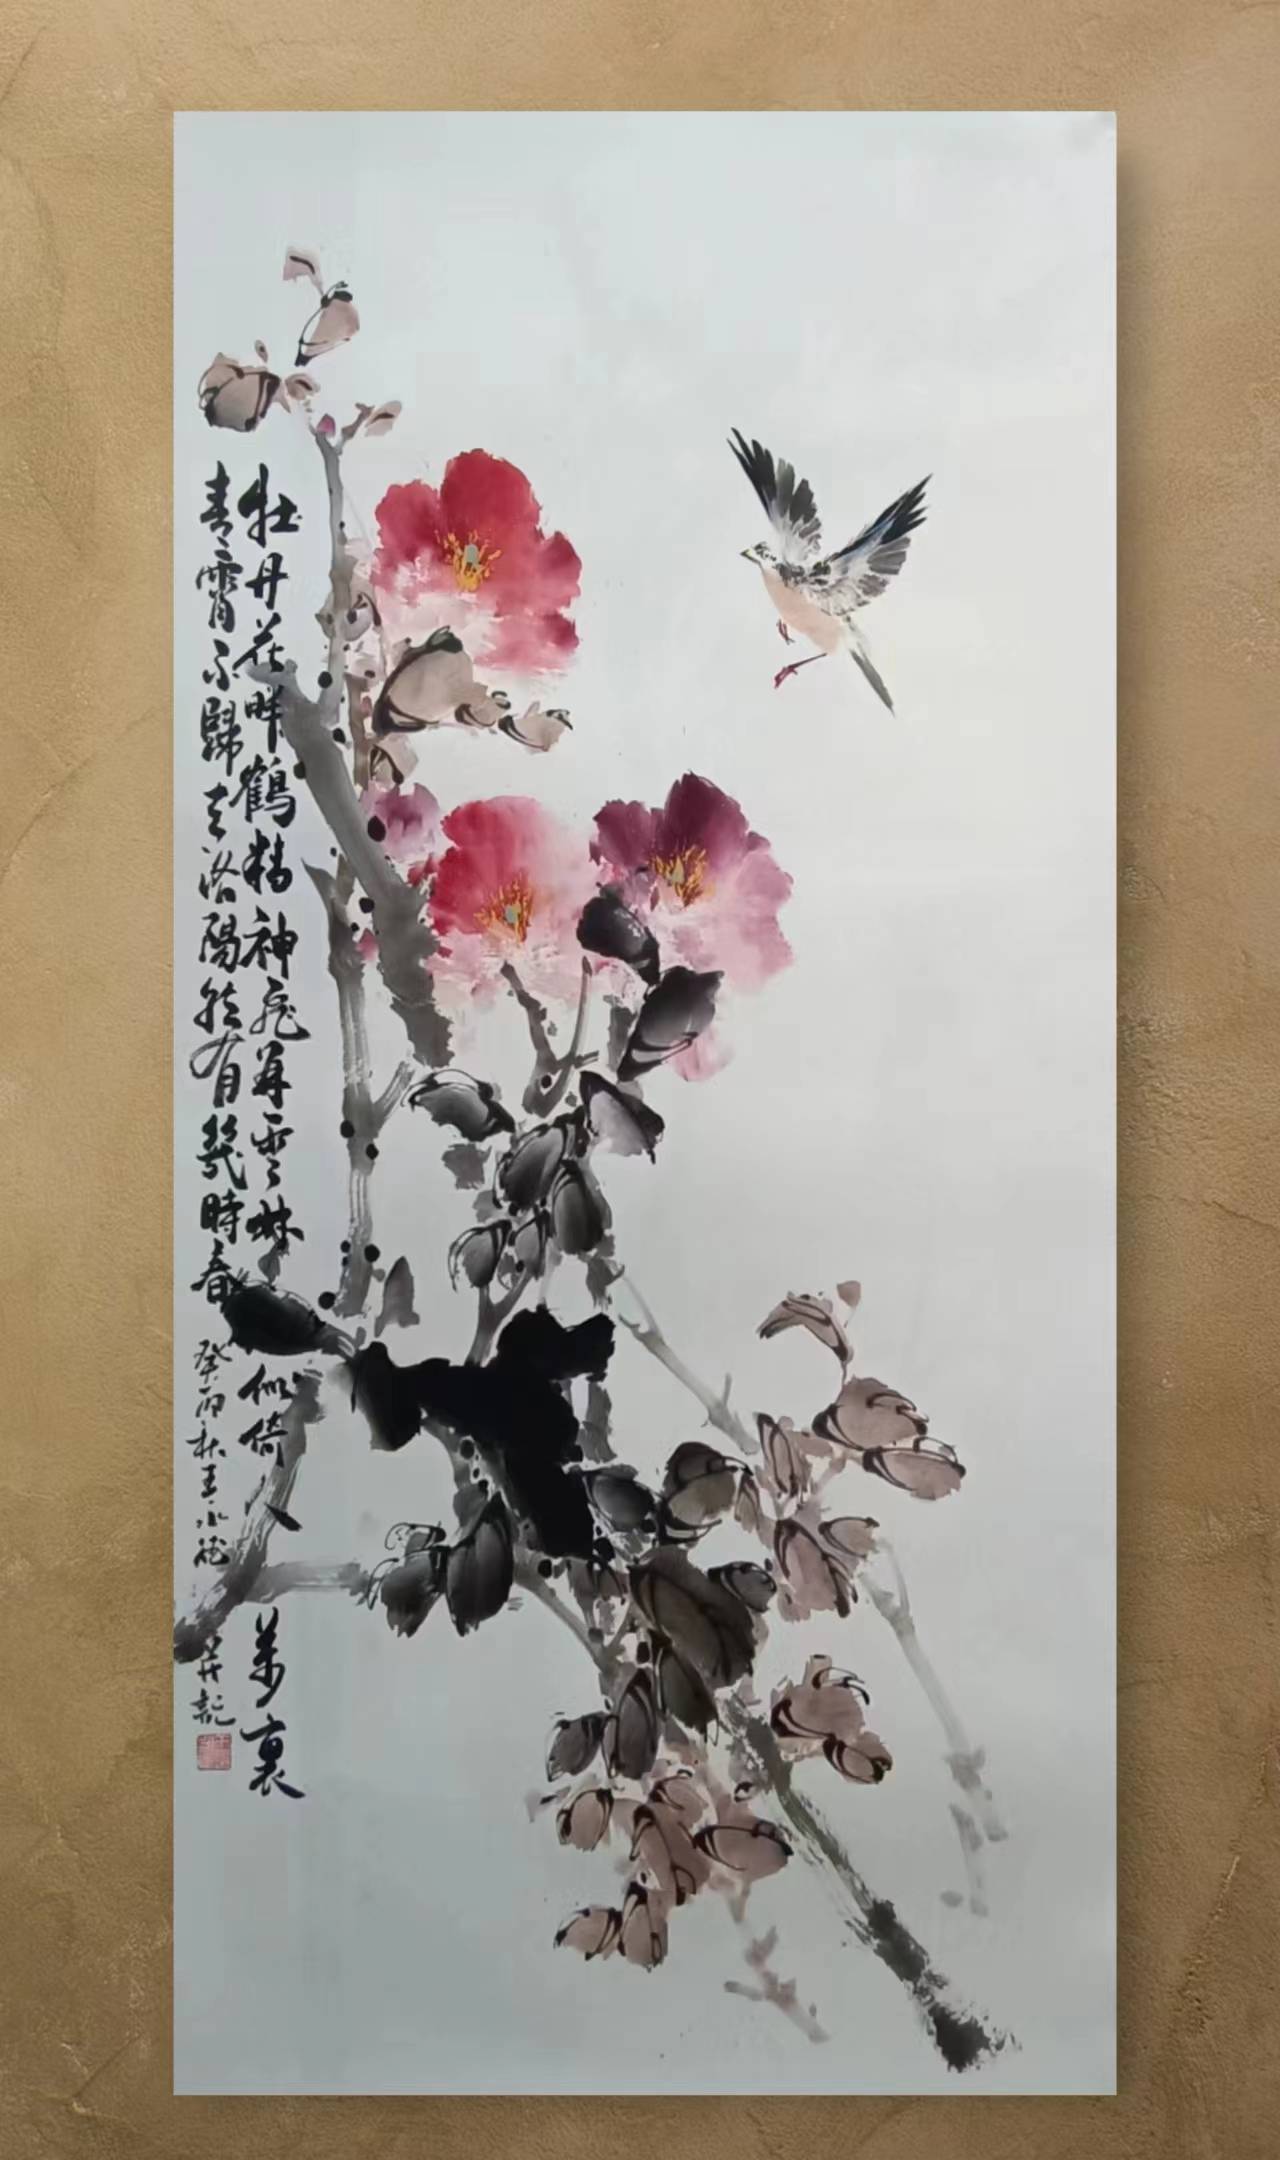 牡丹花畔鶴精神飛舞雲林似倚人萬裏
青霄不歸去洛陽能有幾時春癸卯秋王永強并記